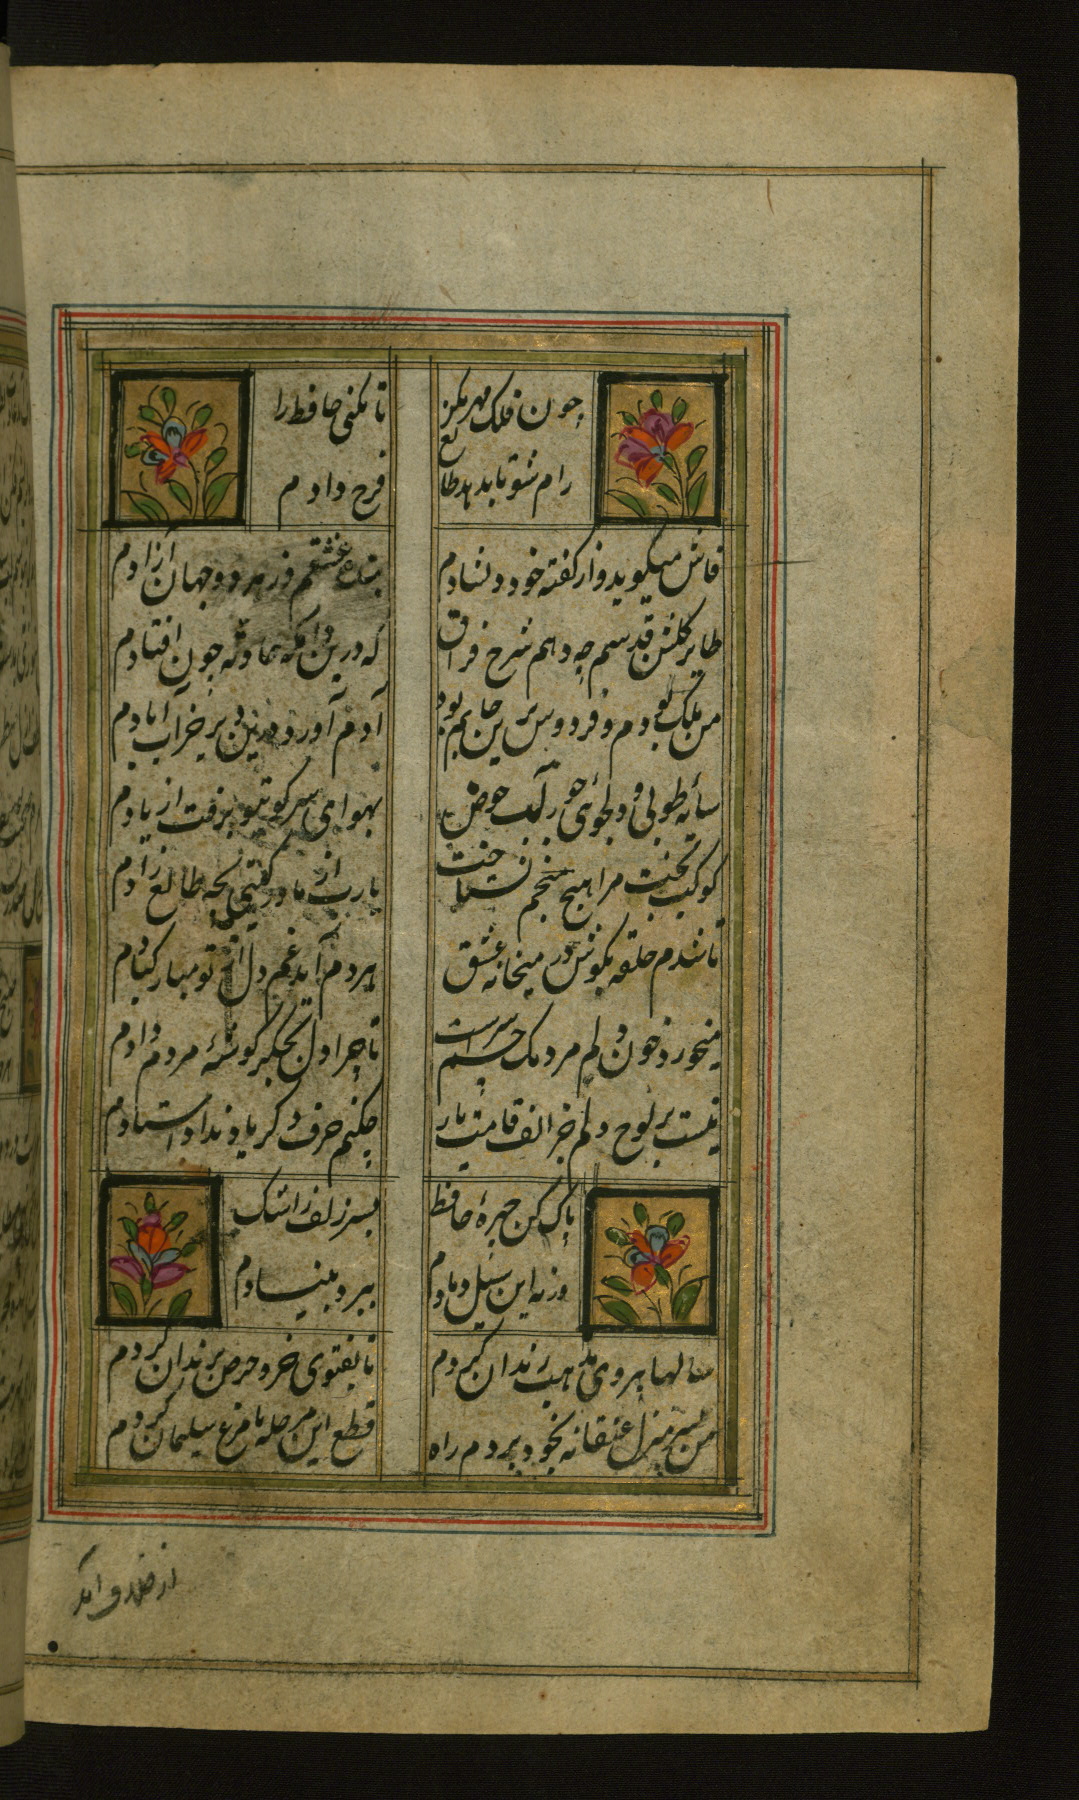 چون فلک مهر مکن تا نکشی حافظ را
رام شو تا بدهد طالع فرخ دادم
فاش میگوید و از کفته خود دلشادم
بنده عشقم و ز هر دو جهان آزادم
طایر کلشن قدسم چه دهم شرح فراق
که درین دامکه حادثه چون افتادم
من ملک بودم و فردوس برین جایم بود
آدم آورد درین دیر خراب آبادم
سایه طوبی و دلجوئی حور و لب حوض
بهوای سر کوی تو برفت از یادم
کوکب بخت مرا هیچ منجم نشناخت
یارب از مادر کیتی بچه طالع زادم
تا شدم حلقه بکوش در میخانه عشق
هر دم آید غمی از تو مبارکبادم
میخورد خون دلم مردمک چشم سزاست
تا چرا دل بجکر کوشه مردم دادم
نیست بر لوح دلم جز الف قامت یار
چکنم حرف دکر یاد نداد استادم
پاک کن چهره حافظ بسر زلف ز اشک
ورنه این سیل دمادم ببرد بنیادم
سالها پیروی مذهب رندان کردم
تا بفتوی خرد حرص بزندان کردم
من بسر منزل عنقا نه بخود بردم راه
قطع این مرحله با مرغ سلیمان کردم